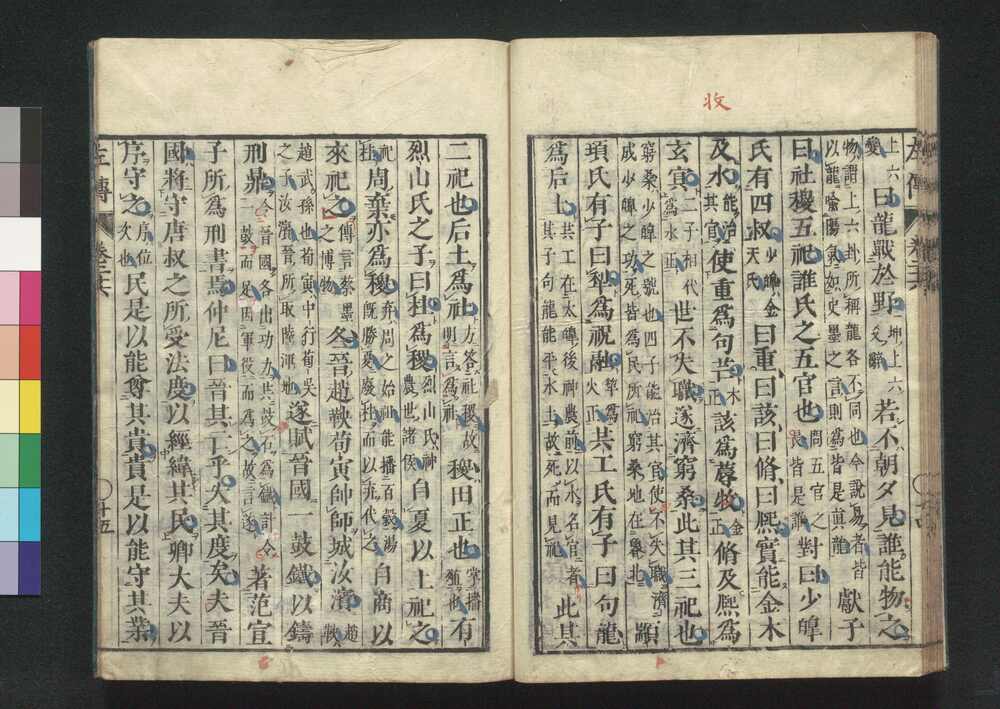 收
左傳 卷二十六
上六變曰龍戰於野坤上六爻辭若不朝夕見誰能物之
物謂上六卦所稱龍各不同也今說易者皆以龍喻陽氣如史墨之言則爲皆是真龍獻子
曰社稷五祀誰氏之五官也問五官之長皆是誰對曰少皥
氏有四叔少皥金天氏曰重曰該曰脩曰熙實能金木
及水能治其官使重爲句芒木正該爲蓐收金正脩及熙爲
玄冥二子相代爲水正世不失職遂濟窮桑此其三祀也
窮桑少皥之號也四子能治其官使不失職濟成少皥之功死皆爲民所祀窮桑地在魯北顓
頊氏有子曰犂爲祝融犂爲火正共工氏有子曰句龍
爲后土共工在太皥後神農前以水名官者其子句龍能平水土故死而見祀此其
二祀也后土爲社方答社稷故明言爲社稷田正也掌播殖也有
烈山氏之子曰柱爲稷烈山氏神農世諸侯自夏以上祀之
祀柱周棄亦爲稷棄周之始祖能播百穀湯既勝夏廢柱而以棄代之自商以
來祀之傳言蔡墨之博物冬晉趙鞅荀寅帥師城汝濱趙鞅
趙武孫也荀寅中行荀吳之子汝濱晉所取陸渾地遂賦晉國一鼓鐵以鑄
刑鼎令晉國各出功力共鼓石爲鐵計令一鼓而足因軍役而爲之故言遂著范宣
子所爲刑書焉仲尼曰晉其亡乎失其度矣夫晉
國將守唐叔之所受法度以經緯其民卿大夫以
序守之序位次也民是以能尊其貴貴是以能守其業
左傳 卷二十六 十五